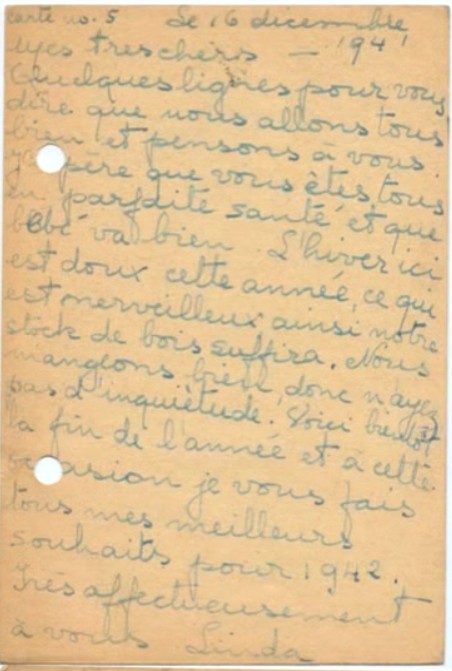 carte no. 5 Le 16 décembre
Mes très chéris — 1941
Quelques lignes pour vous
dire que nous allons tous
bien et pensons à vous.
J'espère que vous êtes tous
en parfaite santé et que
bébé va bien. L'hiver ici
est doux cette année, ce qui
est merveilleux ainsi notre
stock de bois suffira. Nous
mangeons bien, donc n'ayez
pas d'inquiétude. Voici bientôt
la fin de l'année et à cette
occasion je vous fais
tous mes meilleurs
souhaits pour 1942.
Très affectueusement
à vous Linda